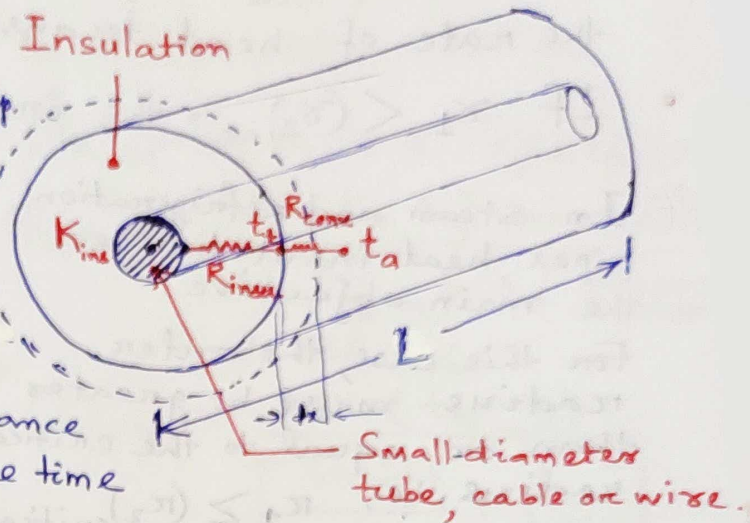 Insulation
p.
K ins
t₁
R conv
t a
R insu
L
dx
ance
e time
Small-diameter
tube, cable or wire.